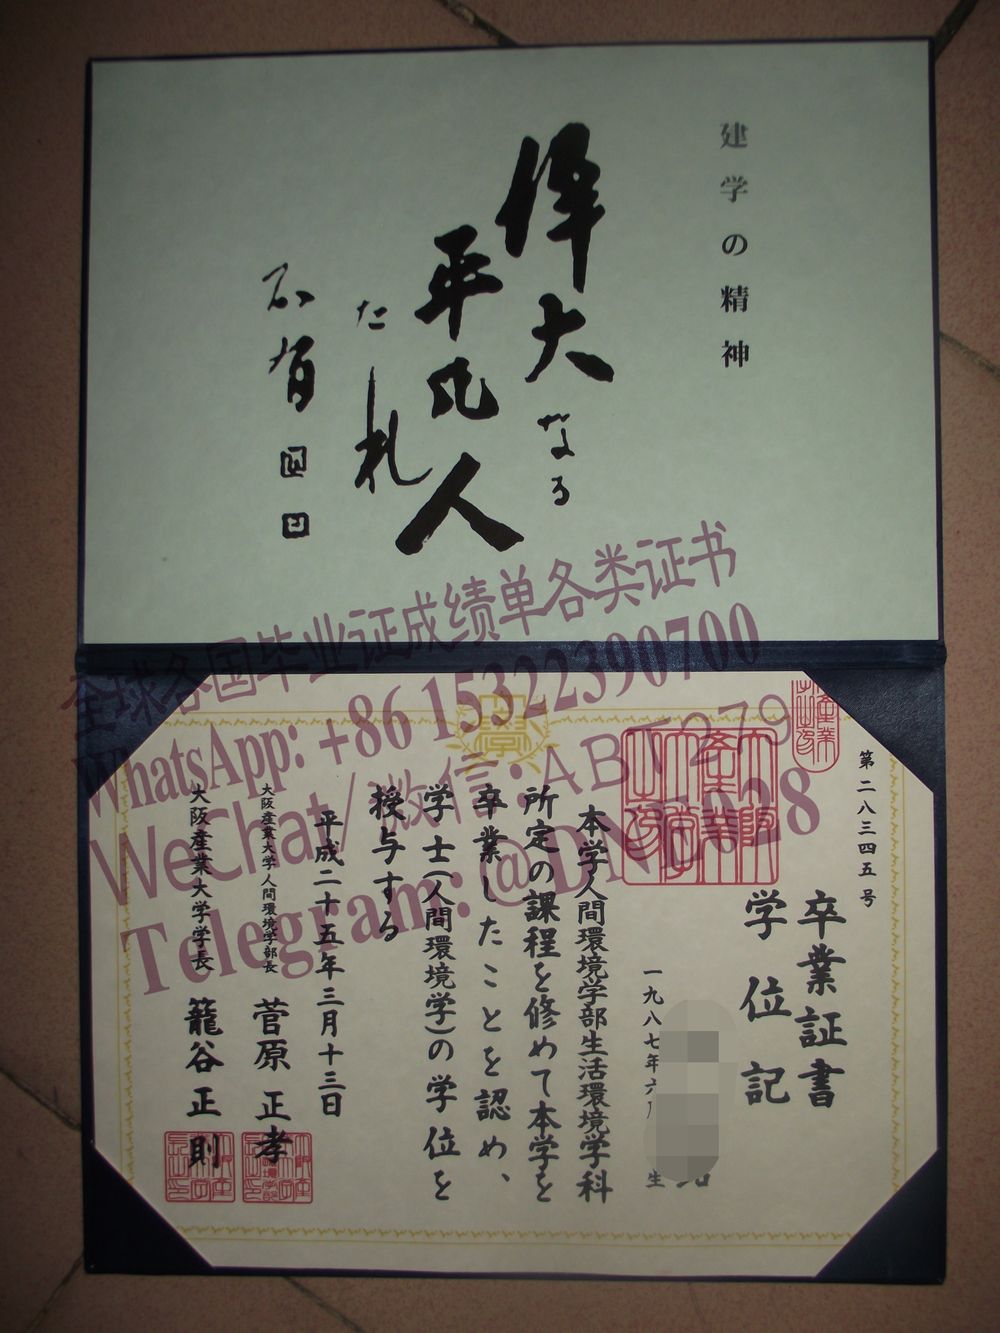 建学の精神
偉大なる
平凡人
たれ
第二八三四五号
卒業証書
学位記
一九八七年六月
生
本学人間環境学部生活環境学科
所定の課程を修めて本学を
卒業したことを認め、
学士(人間環境学)の学位を
授与する
平成二十五年三月十三日
大阪産業大学人間環境学部長 菅原正孝
大阪産業大学学長 籠谷正則
全球各国毕业证成绩单各类证书
WhatsApp: +86 15322390700
WeChat/微信:
Telegram: